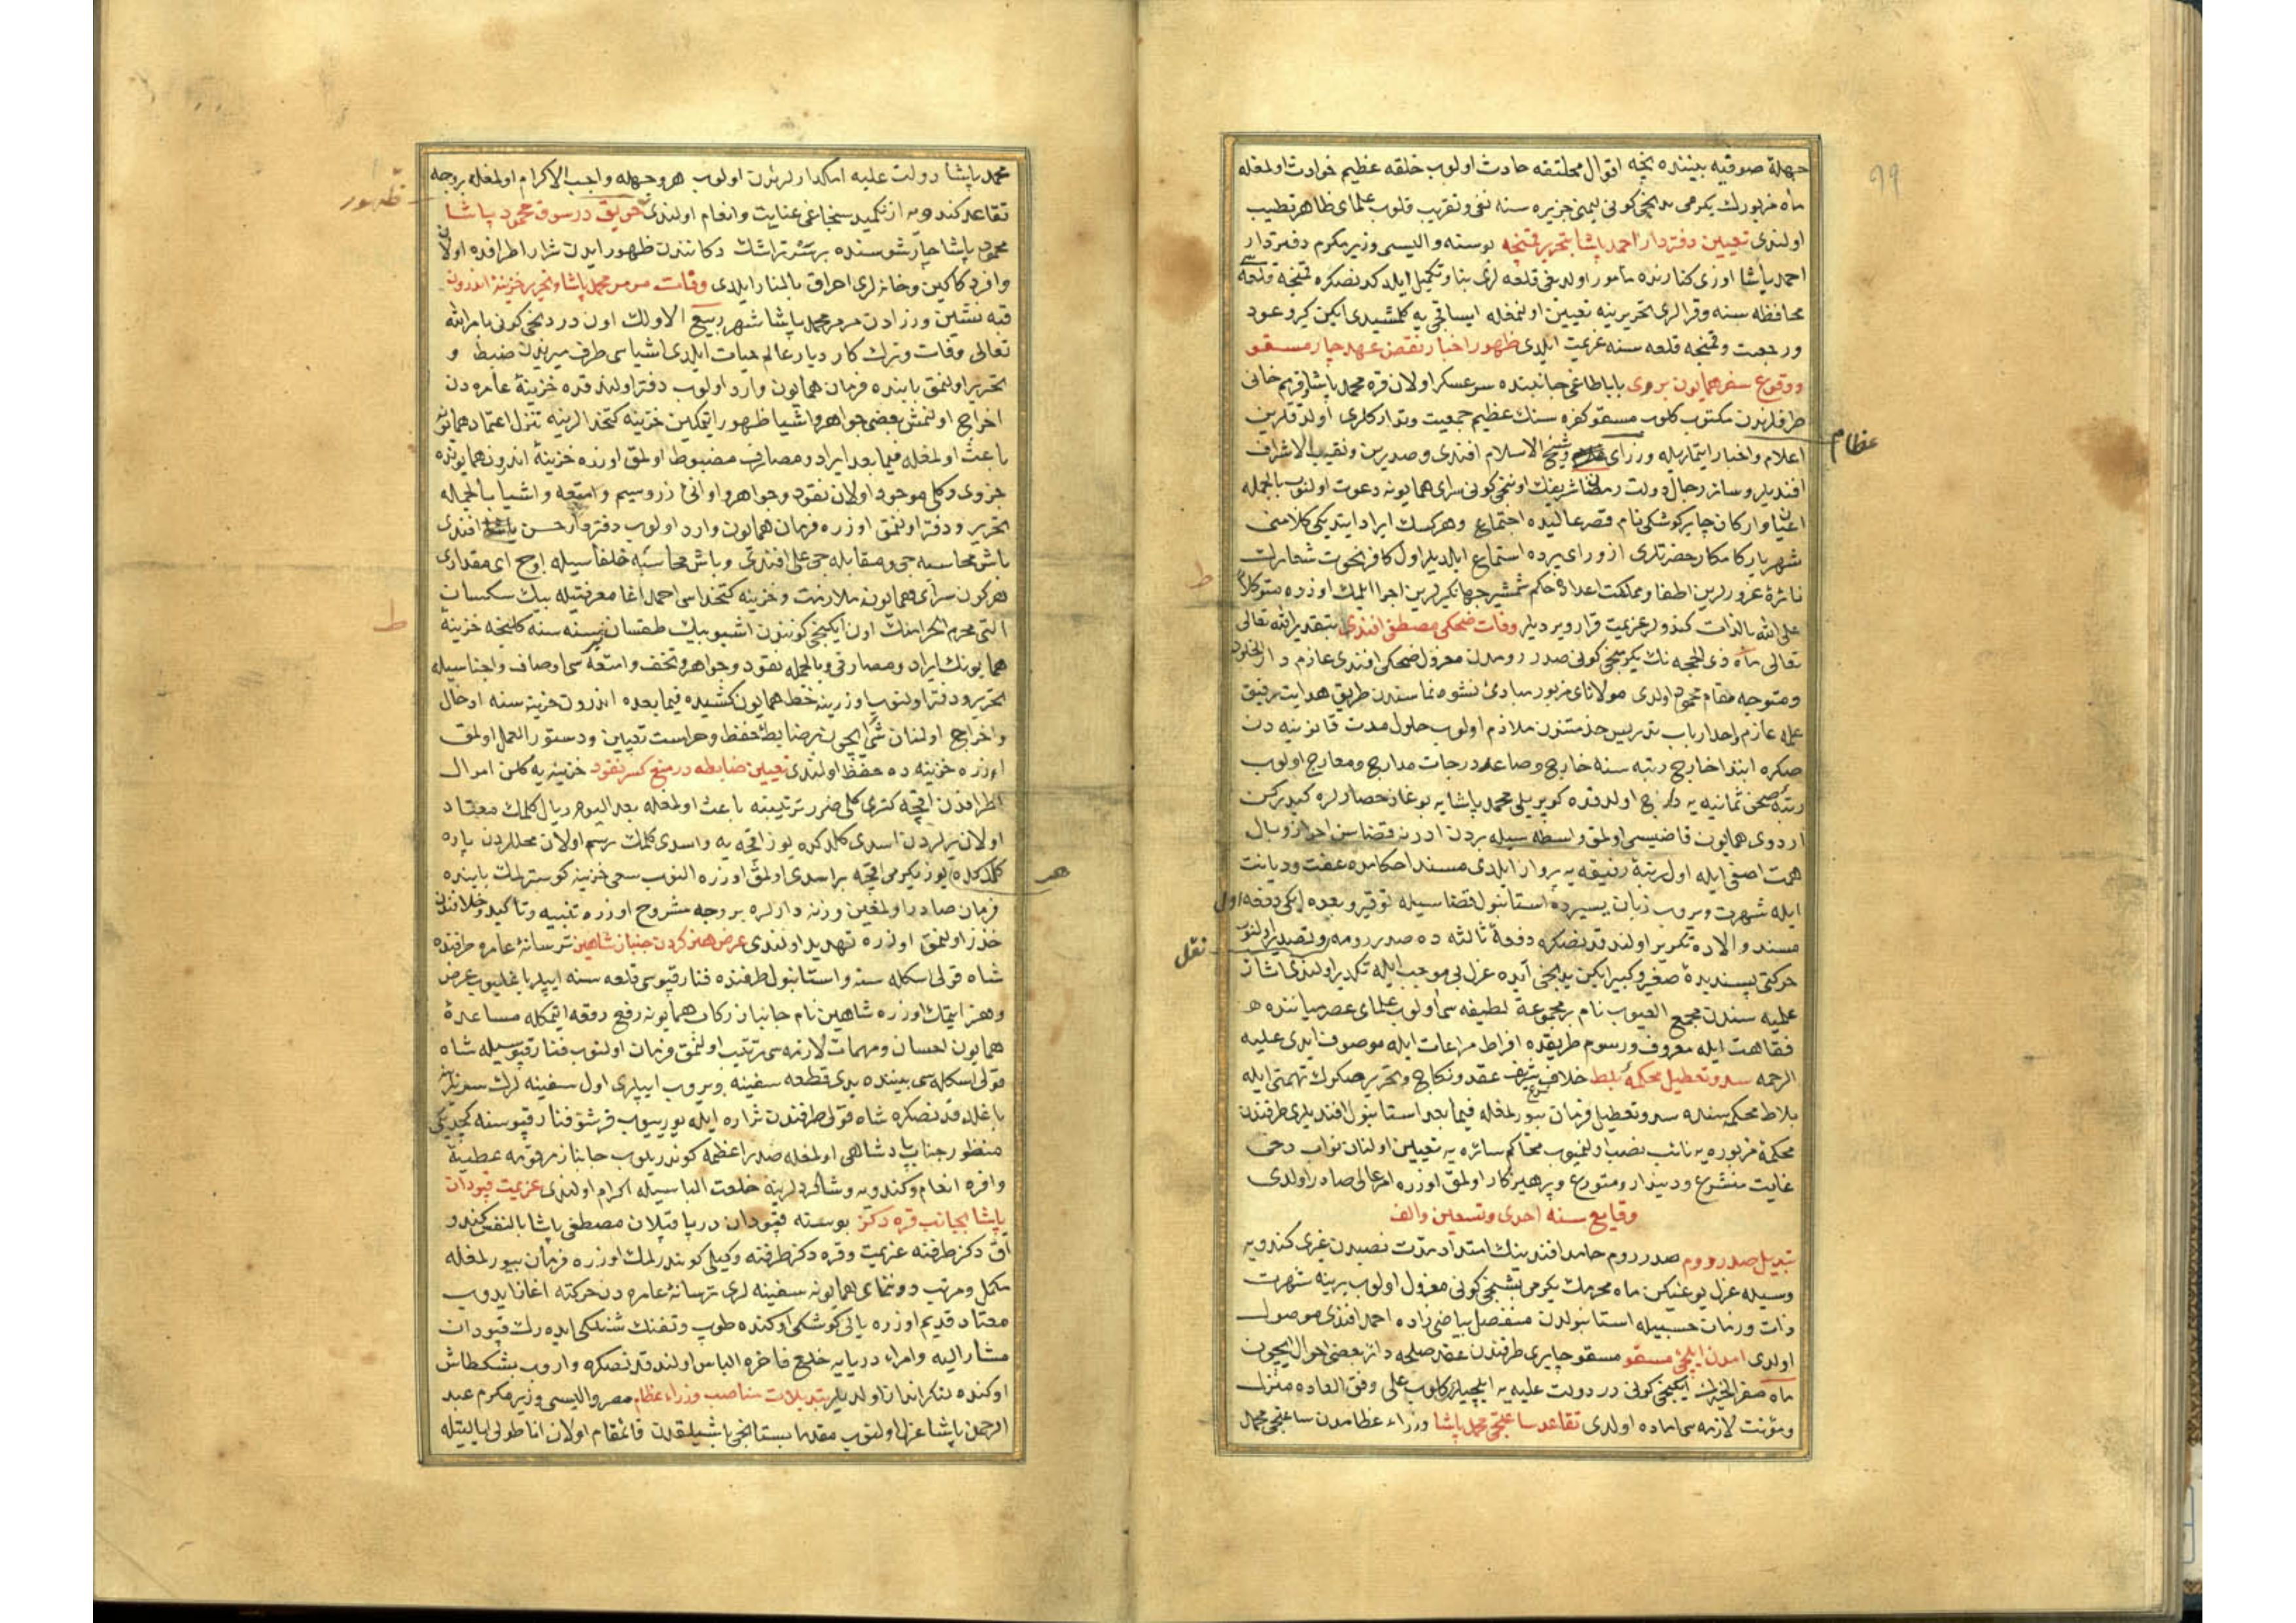 جهلهٔ صوفیه بیننده نچه اقوال مختلفه حادث اولوب خلقه عظیم خوادث اولمغله
ماه مزبورك یکرمی بدنجی کونی لیمنی جزیره سنه نفی وتقریب قلوب علمای ظاهر تطییب
اولندی تعیین دفتردار احمد پاشا بتحریر قمنجه بوسنه والیسی وزیر مکرم دفتردار
احمد پاشا اوزی کنارنده مأمور اولدیغی قلعه لری بنا وتکمیل ایلدکدنصکره قمنجه قلعه سی
محافظه سنه وقرالری تحریرینه تعیین اولنمغله ایساقجی یه کلمشیدی ایکن کیرو عود
ورجعت وقمنجه قلعه سنه عزیمت ایلدی ظهور اخبار نقض عهد چار مسقو
ووقوع سفر همایون بروی باباطاغی جانبنده سرعسکر اولان قره محمد پاشا وقریم خانی
طرفلرندن مکتوب کلوب مسقو کفره سنك عظیم جمعیت وتدارکلری اولدقلرین
عظام
اعلام واخبار ایتملریله وزرای وشیخ الاسلام افندی وصدرین ونقیب الاشراف
افندیلر وسائر رجال دولت رمضان شریفك اوننجی کونی سرای همایونه دعوت اولنوب بالجمله
اعیان وارکان چایر کوشکی نام قصر عالیده اجتماع وهرکسك ایراد ایتدیکی کلامنی
شهریار کامکار حضرتلری از ورای پرده استماع ایلدیلر اول کافر نخوت شعارلك
ط
نائرهٔ غرورلرین اطفا ومملکت اعداده حکم شمشیر جهانکیرلرین اجرا ایلمك اوزره متوکلاً
علی الله بالذات کندولر عزیمته قرار ویردیلر وفات ضحکی مصطفی افندی بتقدیر الله تعالی
تعالی ماه ذی الحجه نك یکرمنجی کونی صدر رومدن معزول ضحکی افندی عازم دار الخلود
ومتوجه مقام محمود اولدی مولانای مزبور مبادئ نشوه نماسندن طریق هدایت رفیق
علمه عازم واحد ارباب تدریس خدمتندن ملازم اولوب حلول مدت قانونیه دن
صکره ابتدا خارج رتبه سنه خارج وصاعد درجات مدارج ومعارج اولوب
رتبهٔ صحن ثمانیه یه دارج اولدقده کوپریلی محمد پاشا یه بوغاز حصارلره کیدرکن
اردوی همایون قاضیسی اولمق واسطه سیله بردن ادرنه قضاسن احراز وبال
همت اصفی ایله اول رتبهٔ رفیعه یه پرواز ایلدی مسند احکامده عفت ودیانت
ایله شهرت ویروب زبان یسیرده استانبول قضاسیله توقیر وبعده ایکی دفعه اول
مسند والاده تکریر اولندقدنصکره دفعهٔ ثالثه ده صدر رومه وتصدیر اولنوب
نقل
حرکتی پسندیدهٔ صغیر وکبیر ایکن یدنجی آیده عزل بی موجب ایله تکدیر اولندی آثار
علمیه سندن مجمع العیوب نام بر مجموعهٔ لطیفه سی اولوب علمای عصر میاننده
فقاهت ایله معروف ورسوم طریقده افراط مراعات ایله موصوف ایدی علیه
الرحمه سد وتعطیل محکمهٔ بلاط خلاف شرع شریف عقد ونکاح وتحریر صکوك تهمتی ایله
بلاط محکمه سنده سد وتعطیل فرمان بیورلمغله فیما بعد استانبول افندیلری طرفندن
محکمهٔ مزبوره یه نائب نصب اولنمیوب محاکم سائره یه تعیین اولنان نواب دخی
غایت متشرع ودیندار ومتورع وپرهیزکار اولمق اوزره امر عالی صادر اولدی
وقایع سنه احدی وتسعین والف
تبدیل صدر روم صدر روم حامد افندینك امتداد مدت نصبدن غیری کندویه
وسیلهٔ عزل یوغیکن ماه محرمك یکرمی بشنجی کونی معزول اولوب یرینه شهرت
ذات وزمان حسبیله استانبولدن منفصل بیاضی زاده احمد افندی موصول
اولدی آمدن ایلچئ مسقو مسقو چاری طرفندن عقد صلحه دائر بعضی احوال ایچون
ماه صفر الخیرك ایکنجی کونی در دولت علیه یه ایلچیلری کلوب علی وفق العاده منزل
ومؤنت لازمه سی آماده اولدی تقاعد ساعتجی محمد پاشا وزراء عظامدن ساعتجی محمد
محمد پاشا دولت علیه امکدارلرندن اولوب هر وجهله واجب الاکرام اولمغله بر وجه
ظهور
تقاعد کندویه ازنکمید سنجاغی عنایت وانعام اولندی حریق در سوق محمود پاشا
محمود پاشا چارشوسنده بر تراشك دکانندن ظهور ایدن شرار اطرافده اولان
وافر دکاکین وخانه لری احراق بالنار ایلدی وفات مرمر محمد پاشا وتحریر خزینهٔ اندرون
قبه نشین وزرادن مرمر محمد پاشا شهر ربیع الاولك اون دردنجی کونی بامر الله
تعالی وفات وترك کار دیار عالم حیات ایلدی اشیاسی طرف میریدن ضبط و
تحریر اولنمق بابنده فرمان همایون وارد اولوب دفتر اولندقده خزینهٔ عامره دن
اخراج اولنمش بعضی جواهر واشیا ظهور ایتمکین خزینه کتخدالرینه تنزل اعتماد همایونه
باعث اولمغله فیما بعد ایراد ومصارف مضبوط اولمق اوزره خزینهٔ اندرون همایونده
جزوی وکلی موجود اولان نقود وجواهر واوانئ زر وسیم وامتعه واشیا بالجمله
تحریر ودفتر اولنمق اوزره فرمان همایون وارد اولوب دفتردار حسن افندی
باش محاسبه جی ومقابله جی علی افندی وباش محاسبه خلفاسیله اوج ای مقداری
هر کون سرای همایونه ملازمت وخزینه کتخداسی احمد اغا معرفتیله بیك سکسان
ط
التی محرم الحرامنك اون ایکنجی کونندن اشبو بیك طقسان بر سنه سنه کلنجه خزینهٔ
همایونك ایراد ومصارفی وبالجمله نقود وجواهر وتحف وامتعه سی اوصاف واجناسیله
تحریر ودفتر اولنوب اوزرینه خط همایون کشیده فیما بعده اندرون خزینه سنه ادخال
واخراج اولنان شی ایچون بر ضابطهٔ حفظ وحراست تعیین ودستور العمل اولمق
اوزره خزینه ده حفظ اولندی تعیین ضابطه در منع کسر نقود خزینه یه کلن اموال
اطرافدن اقچه کتری کلی ضرر ترتیبنه باعث اولمغله بعد الیوم ریال کلمك معتاد
اولان یرلردن اسدی کلدکده یوز اقچه یه واسدی کلمك رسم اولان محللردن پاره
هر
کلدکده یوز یکرمی اقچه بر اسدی اولمق اوزره النوب سعی خزینه کوسترلمك بابنده
فرمان صادر اولمغین وزنه دارلره بر وجه مشروح اوزره تنبیه وتأکید وخلافندن
حذر اولنمق اوزره تهدید اولندی عرض هنر کردن جنباز شاهین ترسانهٔ عامره طرفنده
شاه قولی اسکله سنه واستانبول طرفنده فنار قپوسی قلعه سنه ایپلر باغلیوب عرض
وهنر ایتمك اوزره شاهین نام جانباز رکاب همایونه رفع رقعه ایتمکله مساعدهٔ
همایون احسان ومهمات لازمه سی ترتیب اولنمق فرمان اولنوب فنار قپوسیله شاه
قولی اسکله سی بیننده یدی قطعه سفینه ویروب ایپلری اول سفینه لرك سرنلرینه
باغلدقدنصکره شاه قولی طرفندن شراره ایله یوریوب فرشتو فنار قپوسنه کچدیکی
منظور جناب پادشاهی اولمغله صدر اعظمه کوندریلوب جانباز مرقومه عطیهٔ
وافره انعام وکندویه وشاکردلرینه خلعت الباسیله اکرام اولندی عزیمت قپودان
پاشا بجانب قره دکز بو سنه قپودان دریا قپلان مصطفی پاشا بالنفس کندو
آق دکز طرفنه عزیمت وقره دکز طرفنه وکیلی کوندرلمك اوزره فرمان بیورلمغله
مکمل ومرتب دوننمای همایونه سفینه لری ترسانهٔ عامره دن حرکته اغاز ایدوب
معتاد قدیم اوزره یالی کوشکی اوکنده طوب وتفنك شنلکی ایدرك قپودان
مشار الیه وامراء دریایه خلع فاخره الباس اولندقدنصکره واروب بشکطاش
اوکنده لنکر انداز اولدیلر تبدیلات مناصب وزراء عظام مصر والیسی وزیر مکرم عبد
الرحمن پاشا عزل اولنوب مقدما بستانجی باشیلقدن قائمقام اولان اناطولی ایالتیله